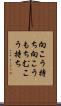 向こう持
ち向こう
もちむこ
う持ち